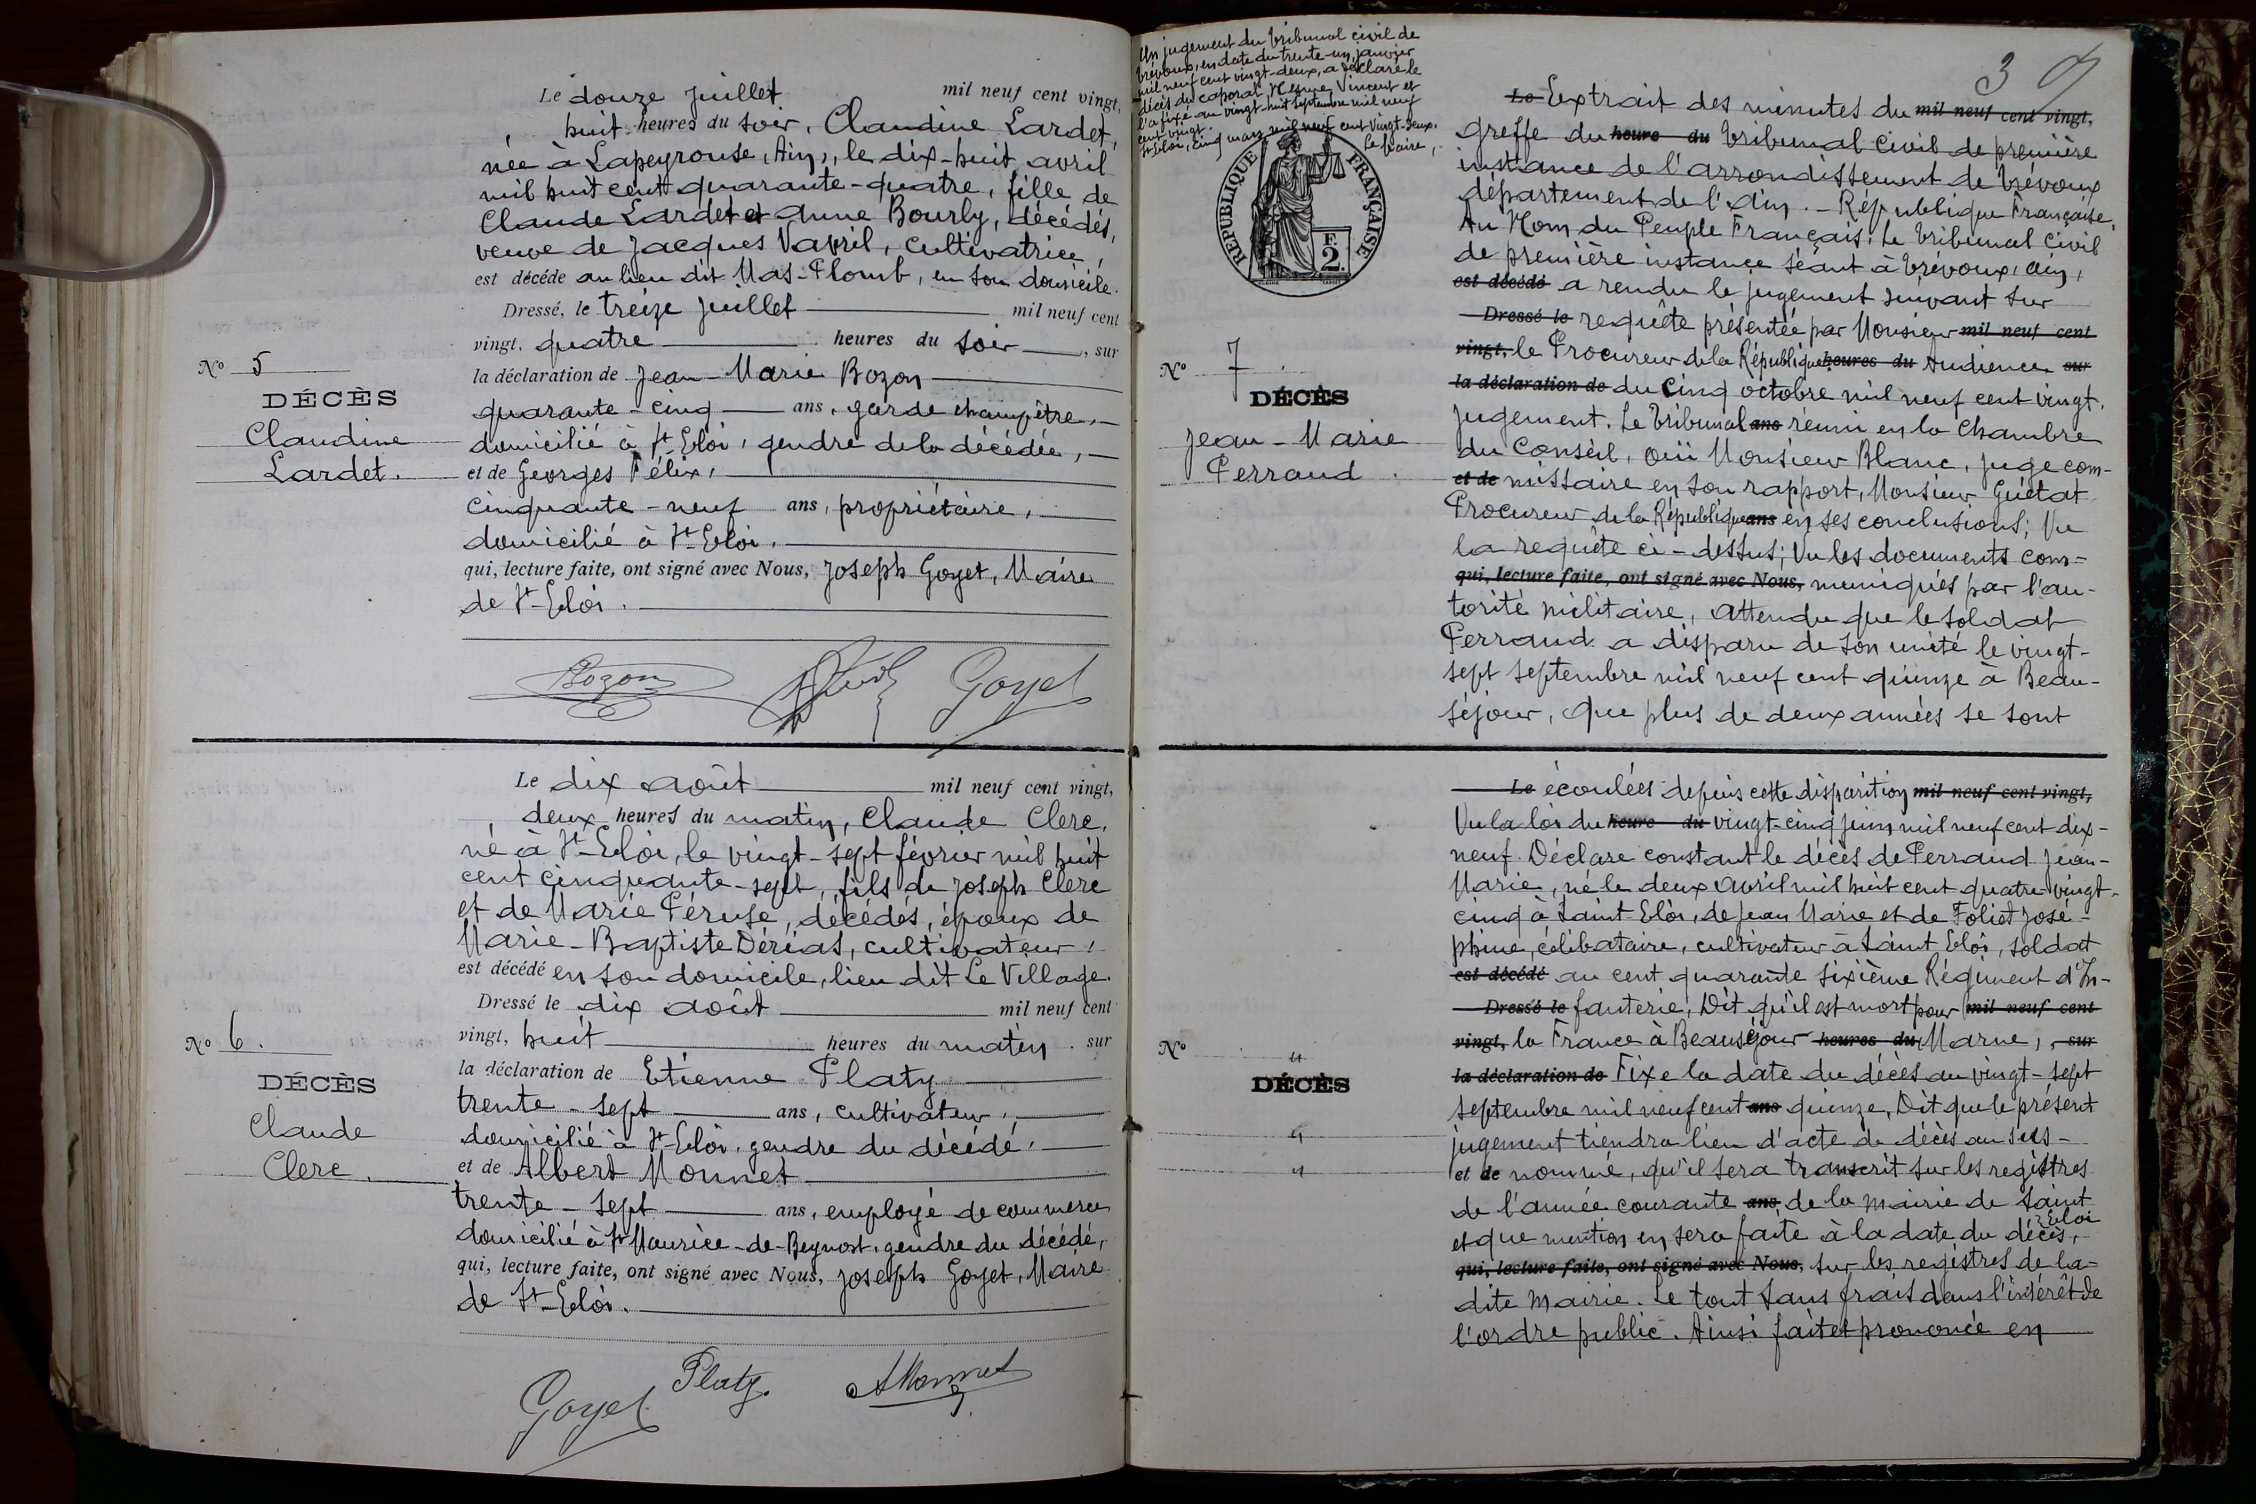 Le douze juillet mil neuf cent vingt,
, huit heures du soir, Claudine Lardet,
née à Lapeyrouse, Ain, le dix-huit avril
mil huit cent quarante-quatre, fille de
Claude Lardet et Anne Bourly, décédés,
veuve de Jacques Vapril, cultivatrice,
est décédé au lieu dit Mas-Plomb, en son domicile.
Dressé, le treize juillet mil neuf cent
vingt, quatre heures du soir, sur
la déclaration de Jean-Marie Bozon
quarante-cinq ans, garde champêtre,
domicilié à St-Eloi, gendre de la décédée,
et de Georges Félix,
cinquante-neuf ans, propriétaire,
domicilié à St-Eloi.
qui, lecture faite, ont signé avec Nous, Joseph Goyet, Maire
de St-Eloi.
No 5
DÉCÈS
Claudine
Lardet.
Bozon Goyet
Le dix août mil neuf cent vingt,
deux heures du matin, Claude Clerc,
né à St-Eloi, le vingt-sept février mil huit
cent cinquante-sept, fils de Joseph Clerc
et de Marie Péruse, décédés, époux de
Marie-Baptiste Dérias, cultivateur,
est décédé en son domicile, lieu dit Le Village.
Dressé le dix août mil neuf cent
vingt, huit heures du matin. sur
la déclaration de Etienne Platy
trente-sept ans, cultivateur,
domicilié à St-Eloi, gendre du décédé,
et de Albert Monnet
trente-sept ans, employé de commerce
domicilié à St Maurice-de-Beynost, gendre du décédé,
qui, lecture faite, ont signé avec Nous, Joseph Goyet, Maire
de St-Eloi.
No 6.
DÉCÈS
Claude
Clerc.
Goyet Platy AMonnet
Un jugement du tribunal civil de
Trévoux, en date du trente-un janvier
mil neuf cent vingt-deux, a déclaré le
décès du caporal Vincent et
l'a fixé au vingt-huit septembre mil neuf
cent vingt.
St-Eloi, cinq mars mil neuf cent vingt-deux.
Le Maire,
REPUBLIQUE FRANÇAISE
F.
2.
3
Le Extrait des minutes du mil neuf cent vingt,
Greffe du heure du tribunal civil de première
instance de l'arrondissement de Trévoux
département de l'Ain. - République Française.
Au Nom du Peuple Français; Le tribunal Civil
de première instance séant à Trévoux, Ain,
est décédé a rendu le jugement suivant sur
Dressé le requête présentée par Monsieur mil neuf cent
vingt, le Procureur de la République heures du Audience sur
la déclaration de du cinq octobre mil neuf cent vingt.
jugement. Le tribunal ans réuni en la Chambre
du Conseil, ouï Monsieur Blanc, juge com-
et de missaire en son rapport, Monsieur Guétat
Procureur de la République ans en ses conclusions; Vu
la requête ci-dessus; Vu les documents com=
qui, lecture faite, ont signé avec Nous, muniqués par l'au-
torité militaire, attendu que le soldat
Perraud a disparu de son unité le vingt-
sept septembre mil neuf cent quinze à Beau-
séjour, que plus de deux années se sont
No 7.
DÉCÈS
Jean-Marie
Perraud.
Le écoulées depuis cette disparition mil neuf cent vingt,
Vu la loi du heure du vingt-cinq juin mil neuf cent dix-
neuf. Déclare constant le décès de Perraud Jean-
Marie, né le deux avril mil huit cent quatre-vingt-
cinq à Saint-Eloi, de Jean Marie et de Foliet José-
phine, célibataire, cultivateur à Saint Eloi, soldat
est décédé au cent quarante sixième Régiment d'In-
Dressé le fanterie, Dit qu'il est mort pour mil neuf cent
vingt, la France à Beauséjour heures du Marne, , sur
la déclaration de Fixe la date du décès au vingt-sept
septembre mil neuf cent ans quinze, Dit que le présent
jugement tiendra lieu d'acte de décès au sus-
et de nommé, qu'il sera transcrit sur les registres
de l'année courante ans de la mairie de Saint
Eloi
et que mention en sera faite à la date du décès,
qui, lecture faite, ont signé avec Nous, sur les registres de la-
dite Mairie. Le tout sans frais dans l'intérêt de
l'ordre public. Ainsi fait et prononcé en
No "
DÉCÈS
"
"